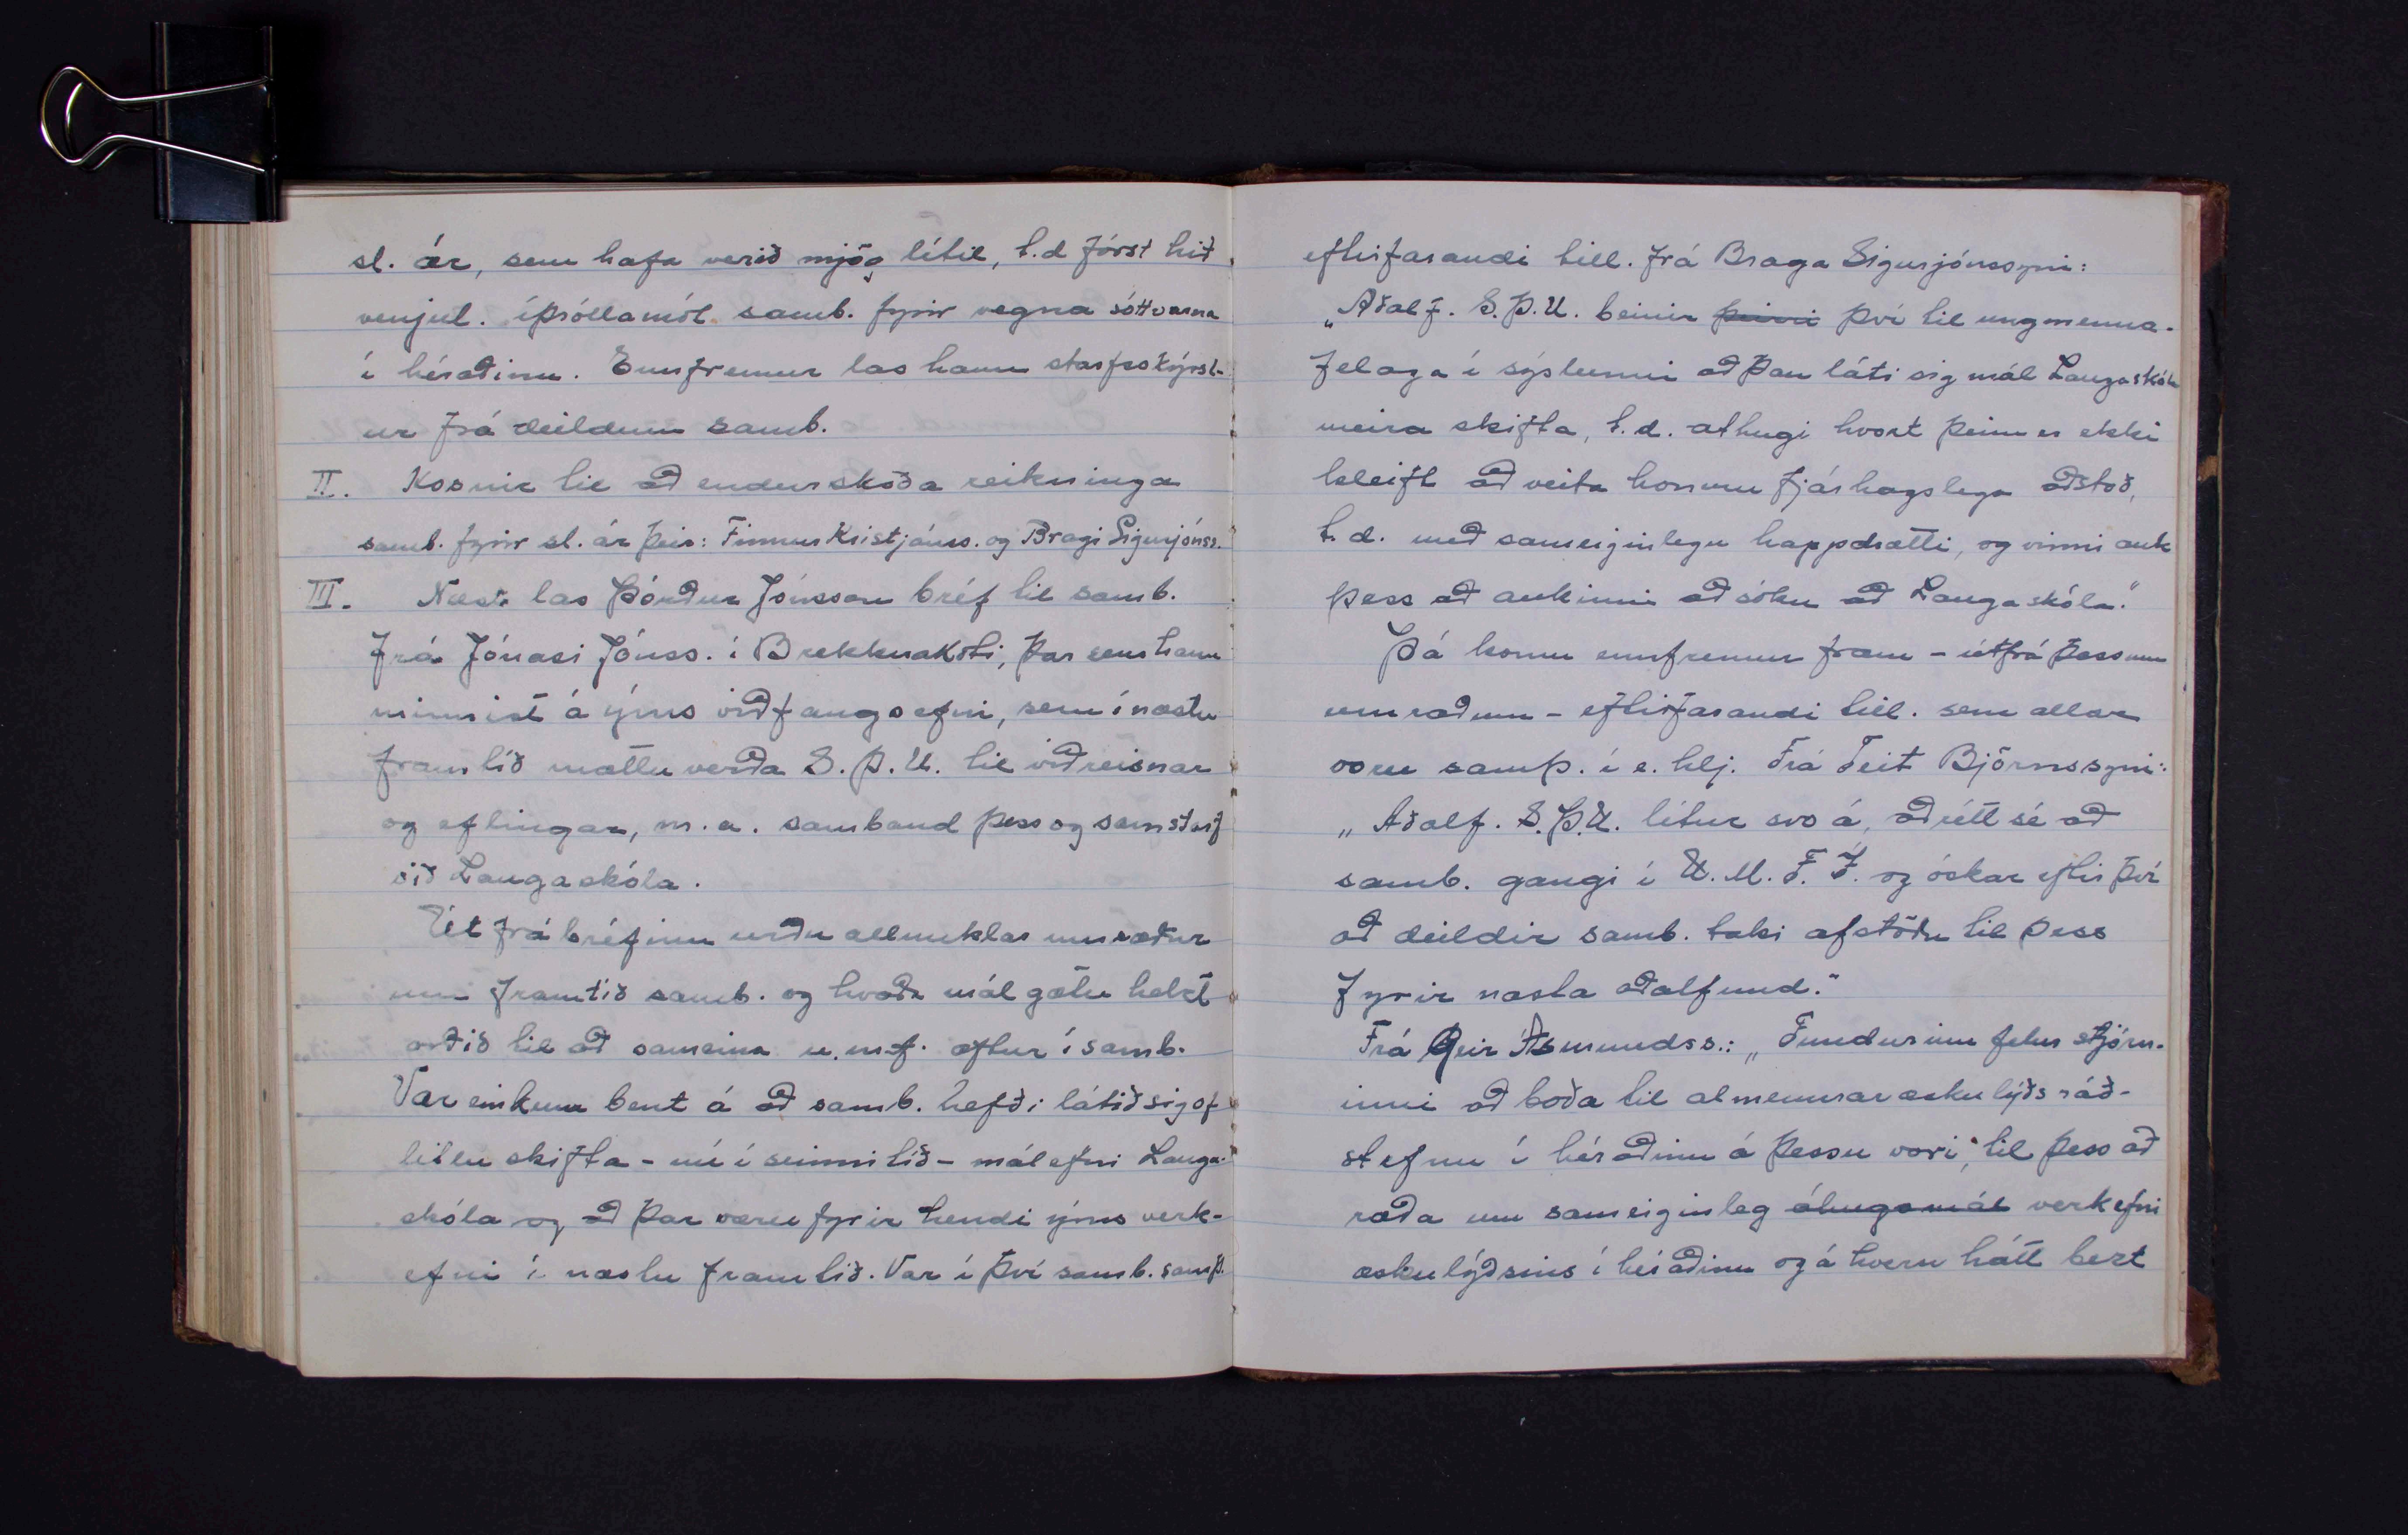 sl. ár, sem hafa verið mjög lítil, t.d fórst hið
venjul. íþróttamót samb. fyrir vegna sóttvarna
í héraðinu. Ennfremur las hann starfsskýrsl-
ur frá deildum samb.
II. Kosnir til að endurskoða reikninga
samb. fyrir sl. ár þeir: Finnur Kristjánss. og Bragi Sigurjónss.
III. Næst las Þórður Jónsson bréf til samb.
frá Jónasi Jónss. í Brekknakoti, þar sem hann
minnist á ýms viðfangsefni, sem í næstu
framtíð mættu verða S.Þ.U. til viðreisnar
og eflingar, m.a. samband þess og samstarf
við Laugaskóla.
Út frá bréfinu urðu allmiklar umræður
um framtíð samb. og hvaða mál gætu helzt
orðið til að sameina u.m.f. aftur í samb.
Var einkum bent á að samb. hefði látið sig of
litlu skifta - nú í seinni tíð - málefni Lauga-
skóla og að þar væru fyrir hendi ýms verk-
efni í næstu framtíð. Var í því samb. samþ.
eftirfarandi till. frá Braga Sigurjónssyni:
„Aðalf. S.Þ.U. beinir þeirri því til ungmenna-
félaga í sýslunni að þau láti sig mál Laugaskóla
meira skifta, t.d. athugi hvort þeim er ekki
kleift að veita honum fjárhagslega aðstoð,
t.d. með sameiginlegu happdrætti, og vinni auk
þess að aukinni aðsókn að Laugaskóla."
Þá komu ennfremur fram - útfrá þessum
umræðum - eftirfarandi till. sem allar
voru samþ. í e. hlj. Frá Teit Björnssyni:
„Aðalf. S.Þ.U. lítur svo á, að rétt sé að
samb. gangi í U.M.F.Í. og óskar eftir því
að deildir samb. taki afstöðu til þess
fyrir næsta aðalfund."
Frá Geir Ásmundss.: „Fundurinn felur stjórn-
inni að boða til almennrar æskulýðsráð-
stefnu í héraðinu á þessu vori, til þess að
ræða um sameiginleg áhugamál verkefni
æskulýðsins í héraðinu og á hvern hátt bezt